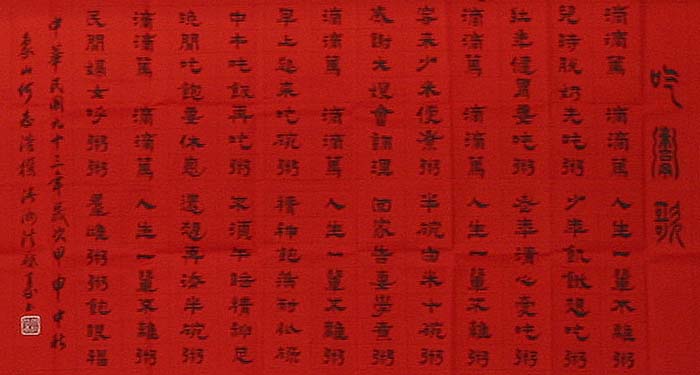 吃歌
滴滴篤 滴滴篤 人生一輩不離粥
兒時脫奶先吃粥 少年飢餓想吃粥
壯年健胃要吃粥 老年清心愛吃粥
滴滴篤 滴滴篤 人生一輩不離粥
客來少米便煮粥 半碗白米十碗粥
感謝大嫂會調理 回家告妻學煮粥
滴滴篤 滴滴篤 人生一輩不離粥
早上起來吃碗粥 精神飽滿
中午吃飯再吃粥 不須午睡精神足
晚間吃飽要休息 還想再添半碗粥
滴滴篤 滴滴篤 人生一輩不離粥
民間婦女呼粥粥 早晚粥粥飽眼福
中華民國九十三年歲次甲申中秋
象山何志浩撰